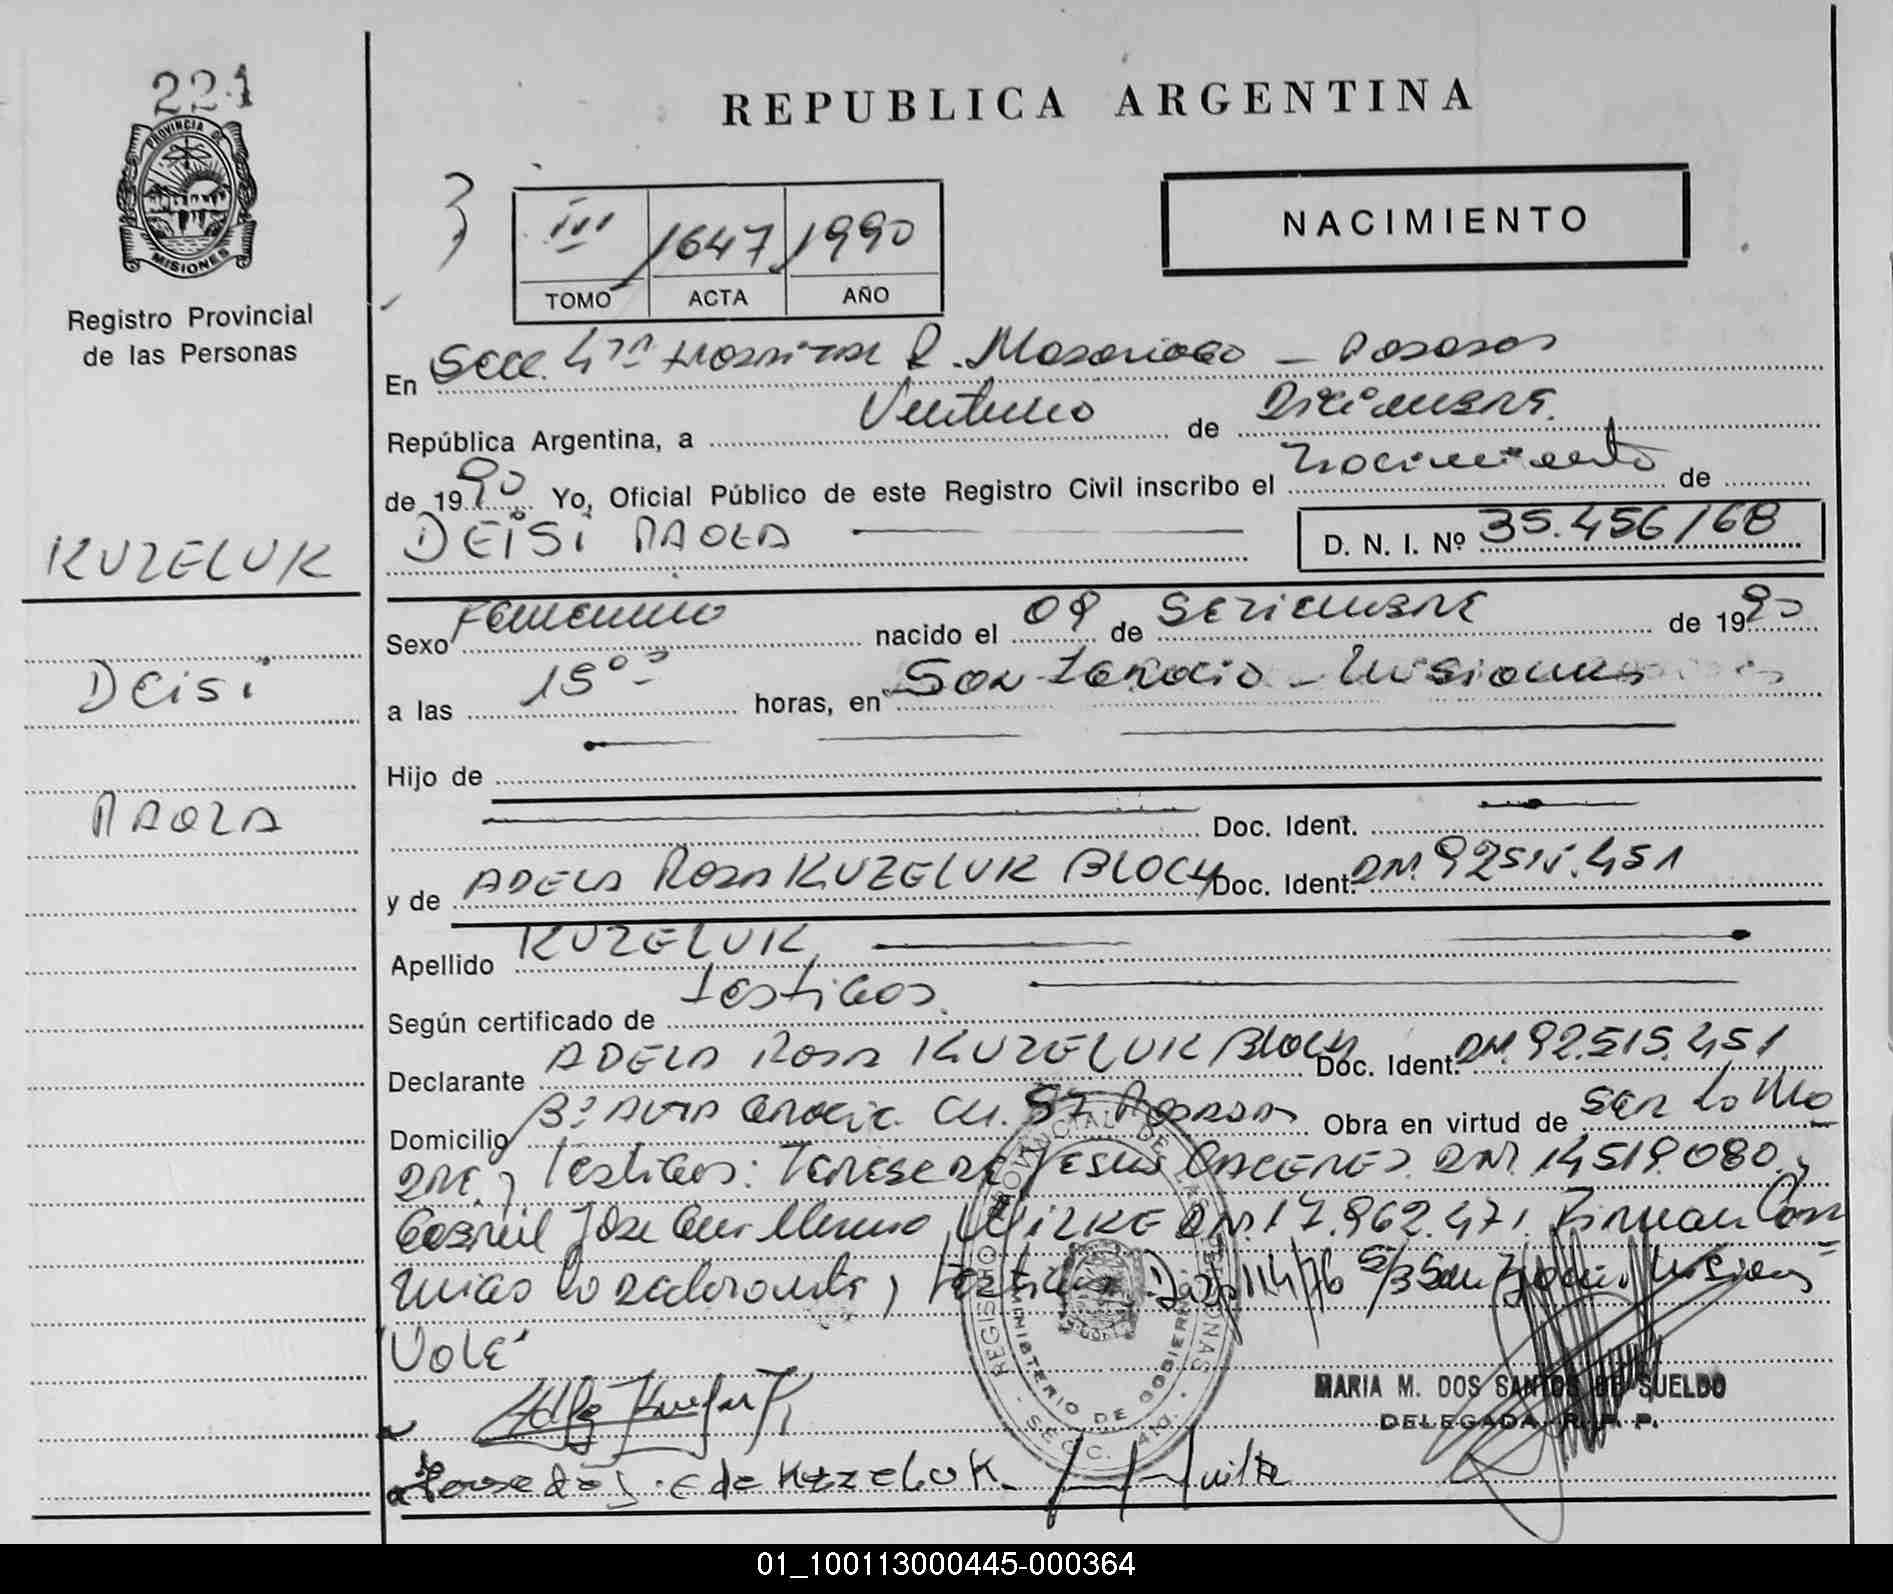 221
PROVINCIA DE
MISIONES
Registro Provincial
de las Personas
KUZELUK
Deisi
PAOLA
REPUBLICA ARGENTINA
NACIMIENTO
III 1647 1990
TOMO ACTA AÑO
En Secc. 4ta Hospital R. Madariaga - Posadas
República Argentina, a Veintiuno de Diciembre
de 1990 Yo, Oficial Público de este Registro Civil inscribo el nacimiento de
DEiSi PAOLA
D. N. I. Nº 35.456/168
Sexo Femenino nacido el 09 de Setiembre de 1990
a las 15°° horas, en San Ignacio - Misiones
Hijo de
Doc. Ident.
y de ADELA ROSA KUZELUK BLOCH Doc. Ident. DNI. 92515.451
Apellido KUZELUK
Según certificado de testigos
Declarante ADELA ROSA KUZELUK BLOCH Doc. Ident. DNI. 92.515.451
Domicilio Bº ALTA GRACIA CH. 57 Posadas Obra en virtud de ser la Ma
dre, Testigos: Teresa de Jesus CACERES DNI. 14519.080 y
Gabriel Jose Guillermo WILKE DNI. 17.962.471. Firman Con
migo la declarante y testigos. 114/76 S/R San Ignacio Misiones
VALE
REGISTRO PROVINCIAL DE LAS PERSONAS
MINISTERIO DE GOBIERNO
SECC. 4ta.
MARIA M. DOS SANTOS DE SUELDO
DELEGADA R. P. P.
de Kuzeluk
01_100113000445-000364